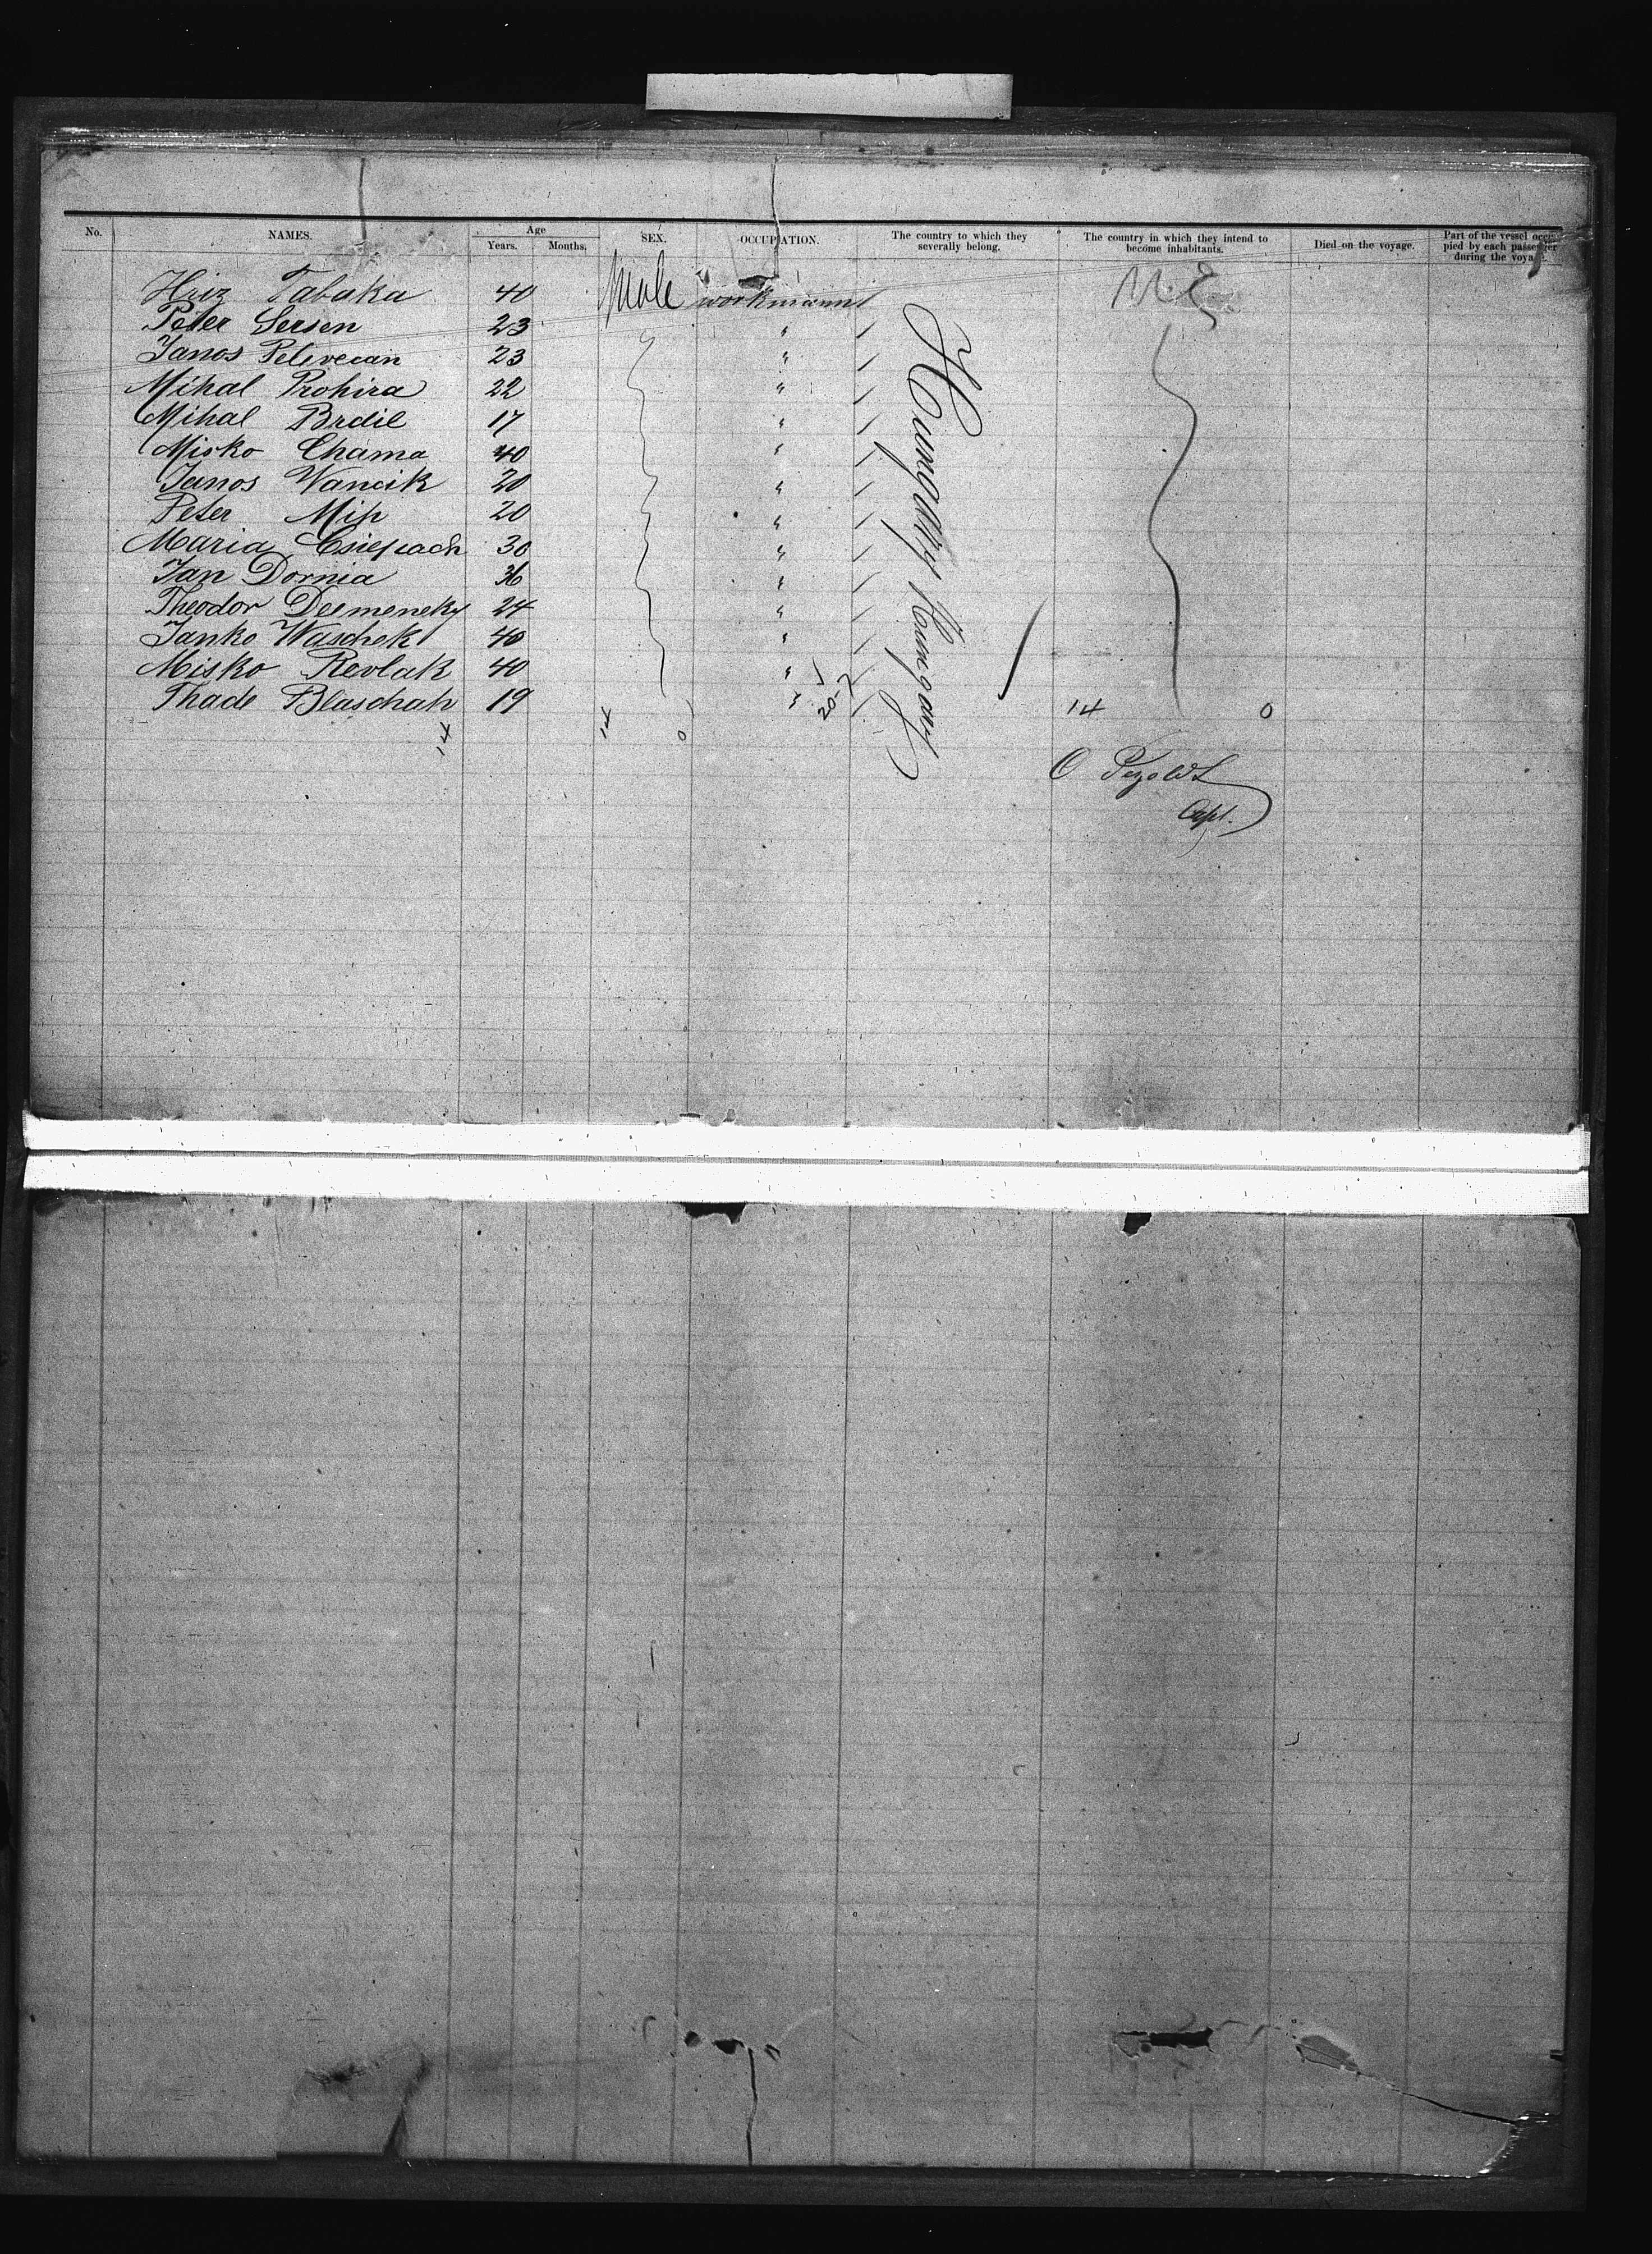 No. NAMES. Age Years. Months. SEX. OCCUPATION. The country to which they severally belong. The country in which they intend to become inhabitants. Died on the voyage. Part of the vessel occupied by each passenger during the voyage.
Tabaka 40 Male workmann
Peter Sersen 23 "
Janos 23 "
Mihal Prohira 22 "
Mihal Brdil 17 "
Misko Chama 40 "
Janos Wancik 20 "
Peter 20 "
Maria 30 "
Jan Dornia 36 "
Theodor Desmeneky 24 "
Janko Waschek 40 "
Misko Revlak 40 "
Thade Blaschak 19 " 20-
Hungary Hungary
14 14 0 14 0
O
Capt.